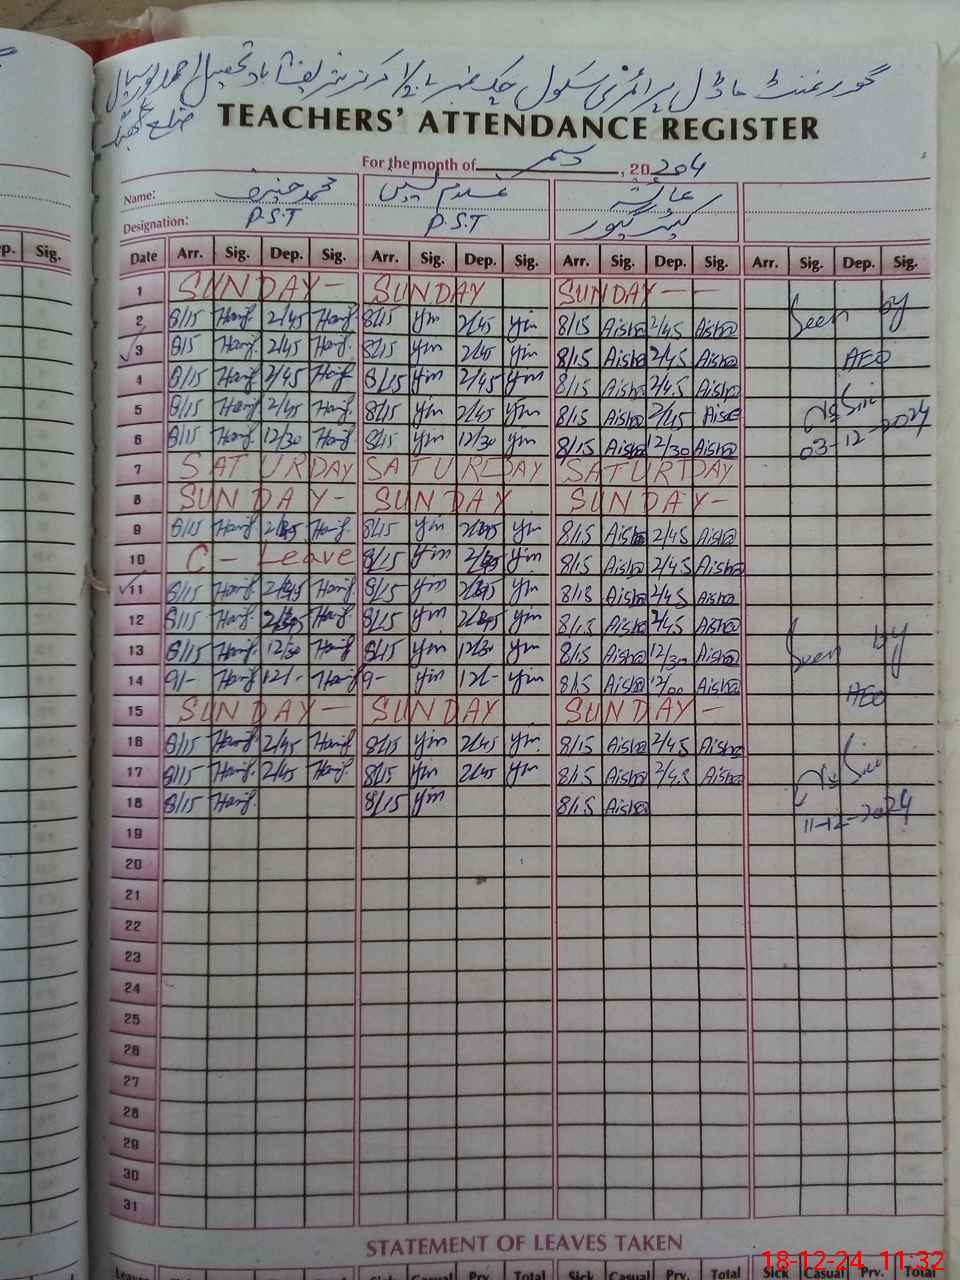 گورنمنٹ ماڈل پرائمری سکول چک نمبر تحصیل احمد پور سیال
ضلع جھنگ
TEACHERS' ATTENDANCE REGISTER
For the month of دسمبر , 20204
Name: محمد حنیف غلام یٰسین عائشہ
Designation: P.S.T P.S.T کیئر گیور
ep. Sig. Date Arr. Sig. Dep. Sig. Arr. Sig. Dep. Sig. Arr. Sig. Dep. Sig. Arr. Sig. Dep. Sig.
1 SUNDAY- SUNDAY SUNDAY--
2 8/15 Hanif 2/45 Hanif 8/15 yin 2/45 yin 8/15 Aisha 2/45 Aisha Seen by
3 8/15 Hanif 2/45 Hanif 8/15 yin 2/45 yin 8/15 Aisha 2/45 Aisha AEO
4 8/15 Hanif 2/45 Hanif 8/15 yin 2/45 yin 8/15 Aisha 2/45 Aisha
5 8/15 Hanif 2/45 Hanif 8/15 yin 2/45 yin 8/15 Aisha 2/45 Aisa
6 8/15 Hanif 12/30 Hanif 8/15 yin 12/30 yin 8/15 Aisha 12/30 Aisha 03-12-2024
7 SATURDAY SATURDAY SATURTDAY
8 SUNDAY- SUNDAY SUNDAY-
9 8/15 Hanif 2/45 Hanif 8/15 yin 2/45 yin 8/15 Aisha 2/45 Aisha
10 C - Leave 8/15 yin 2/45 yin 8/15 Aisha 2/45 Aisha
11 8/15 Hanif 2/45 Hanif 8/15 yin 2/45 yin 8/15 Aisha 2/45 Aisha
12 8/15 Hanif 2/45 Hanif 8/15 yin 2/45 yin 8/15 Aisha 2/45 Aisha
13 8/15 Hanif 12/30 Hanif 8/15 yin 12/30 yin 8/15 Aisha 12/30 Aisha Seen by
14 9/- Hanif 12/- Hanif 9- yin 12/- yin 8/15 Aisha 12/00 Aisha AEO
15 SUNDAY- SUNDAY SUNDAY-
16 8/15 Hanif 2/45 Hanif 8/15 yin 2/45 yin 8/15 Aisha 2/45 Aisha
17 8/15 Hanif 2/45 Hanif 8/15 yin 2/45 yin 8/15 Aisha 2/45 Aisha
18 8/15 Hanif 8/15 yin 8/15 Aisha 11-12-2024
19
20
21
22
23
24
25
26
27
28
29
30
31
STATEMENT OF LEAVES TAKEN
Leaves Sick Casual Prv. Total Sick Casual Prv. Total Sick Casual Prv. Total
18-12-24 11:32